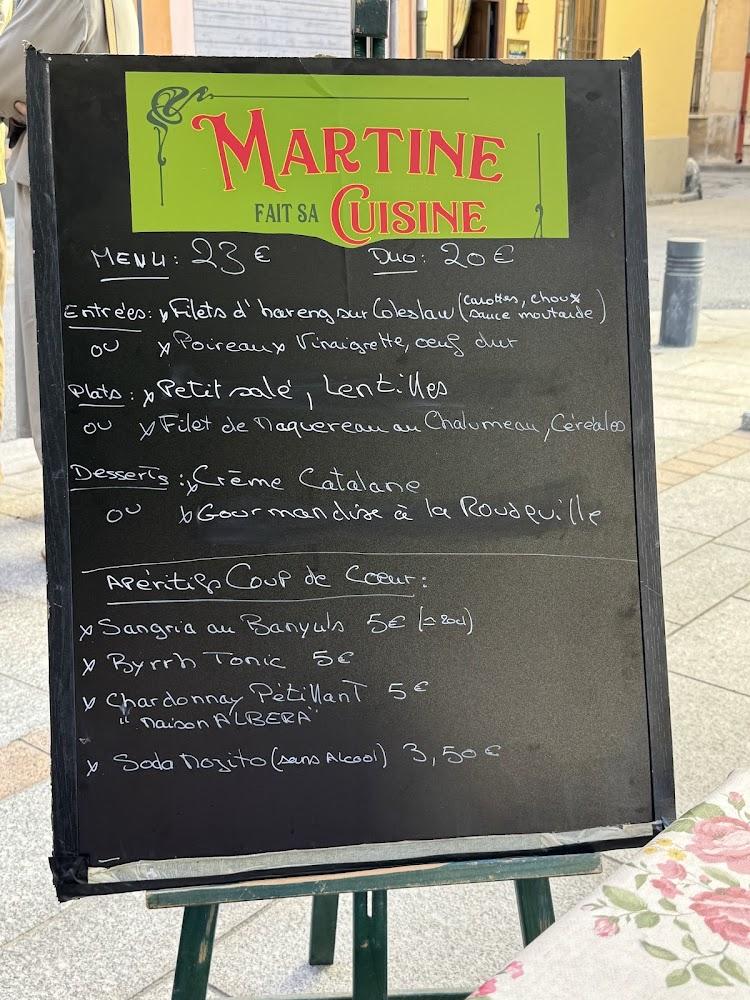 MARTINE
FAIT SA CUISINE
MENU: 23 € Duo: 20 €
Entrées: x Filets d'hareng sur Coleslaw (carottes, choux
sauce moutarde)
ou x Poireaux Vinaigrette, œuf dur
Plats: x Petit salé, Lentilles
ou x Filet de Maquereau au Chalumeau, Céréales
Desserts: x Crème Catalane
ou x Gourmandise à la Rousquille
Apéritifs Coup de Cœur:
x Sangria au Banyuls 5€
x Byrrh Tonic 5€
x Chardonnay Pétillant 5€
"Maison ALBERA"
x Soda Mojito (sans Alcool) 3,50€